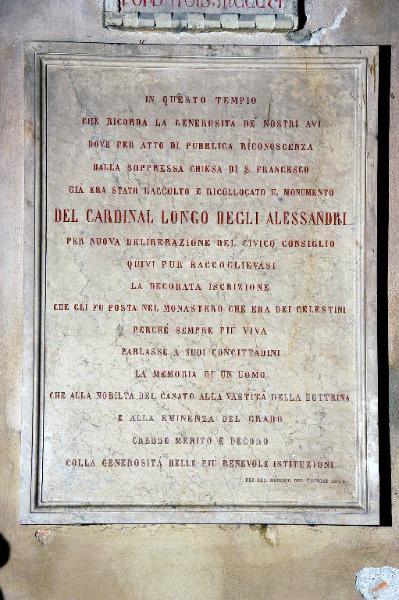 IN QUESTO TEMPIO
CHE RICORDA LA GENEROSITA DE' NOSTRI AVI
DOVE PER ATTO DI PUBBLICA RICONOSCENZA
DALLA SOPPRESSA CHIESA DI S. FRANCESCO
GIA ERA STATO RACCOLTO E RICOLLOCATO IL MONUMENTO
DEL CARDINAL LONGO DEGLI ALESSANDRI
PER NUOVA DELIBERAZIONE DEL CIVICO CONSIGLIO
QUIVI PUR RACCOGLIEVASI
LA DECORATA ISCRIZIONE
CHE GLI FU POSTA NEL MONASTERO CHE ERA DEI CELESTINI
PERCHÈ SEMPRE PIU VIVA
PARLASSE A SUOI CONCITTADINI
LA MEMORIA DI UN UOMO
CHE ALLA NOBILTÀ DEL CASATO ALLA VASTITÀ DELLA DOTTRINA
E ALLA EMINENZA DEL GRADO
CREBBE MERITO E DECORO
COLLA GENEROSITÀ DELLE PIU BENEVOLE ISTITUZIONI